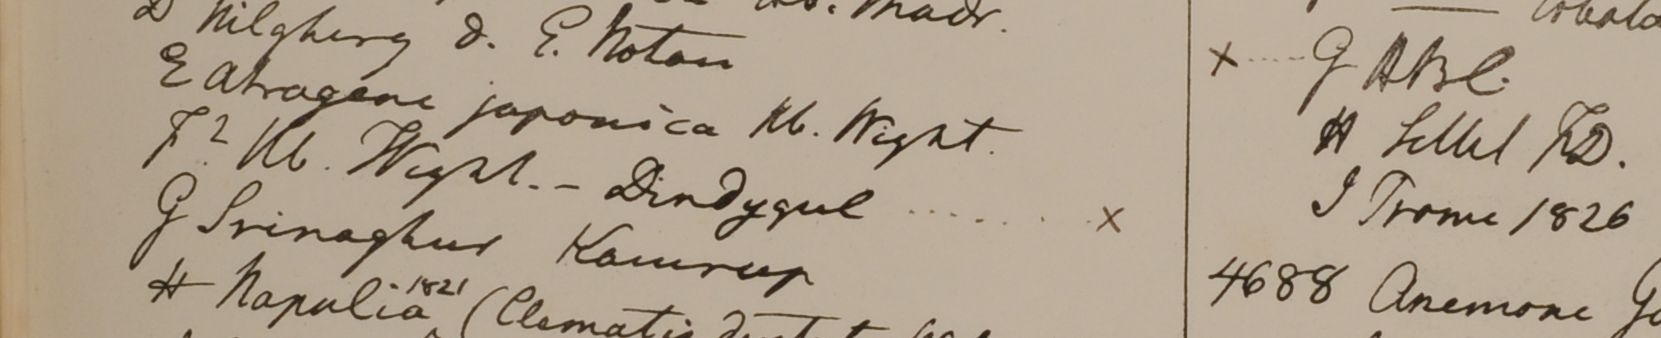 Hb. Madr.
D Nilghery d. E. Noton
E Atragene japonica Hb. Wight.
F? Hb. Wight. - Dindygul ........ x
G Srinaghur Kamrup
H Napalia 1821 (Clematis
x ..... G HBC.
H Sillet FD.
I Prome 1826
4688 Anemone